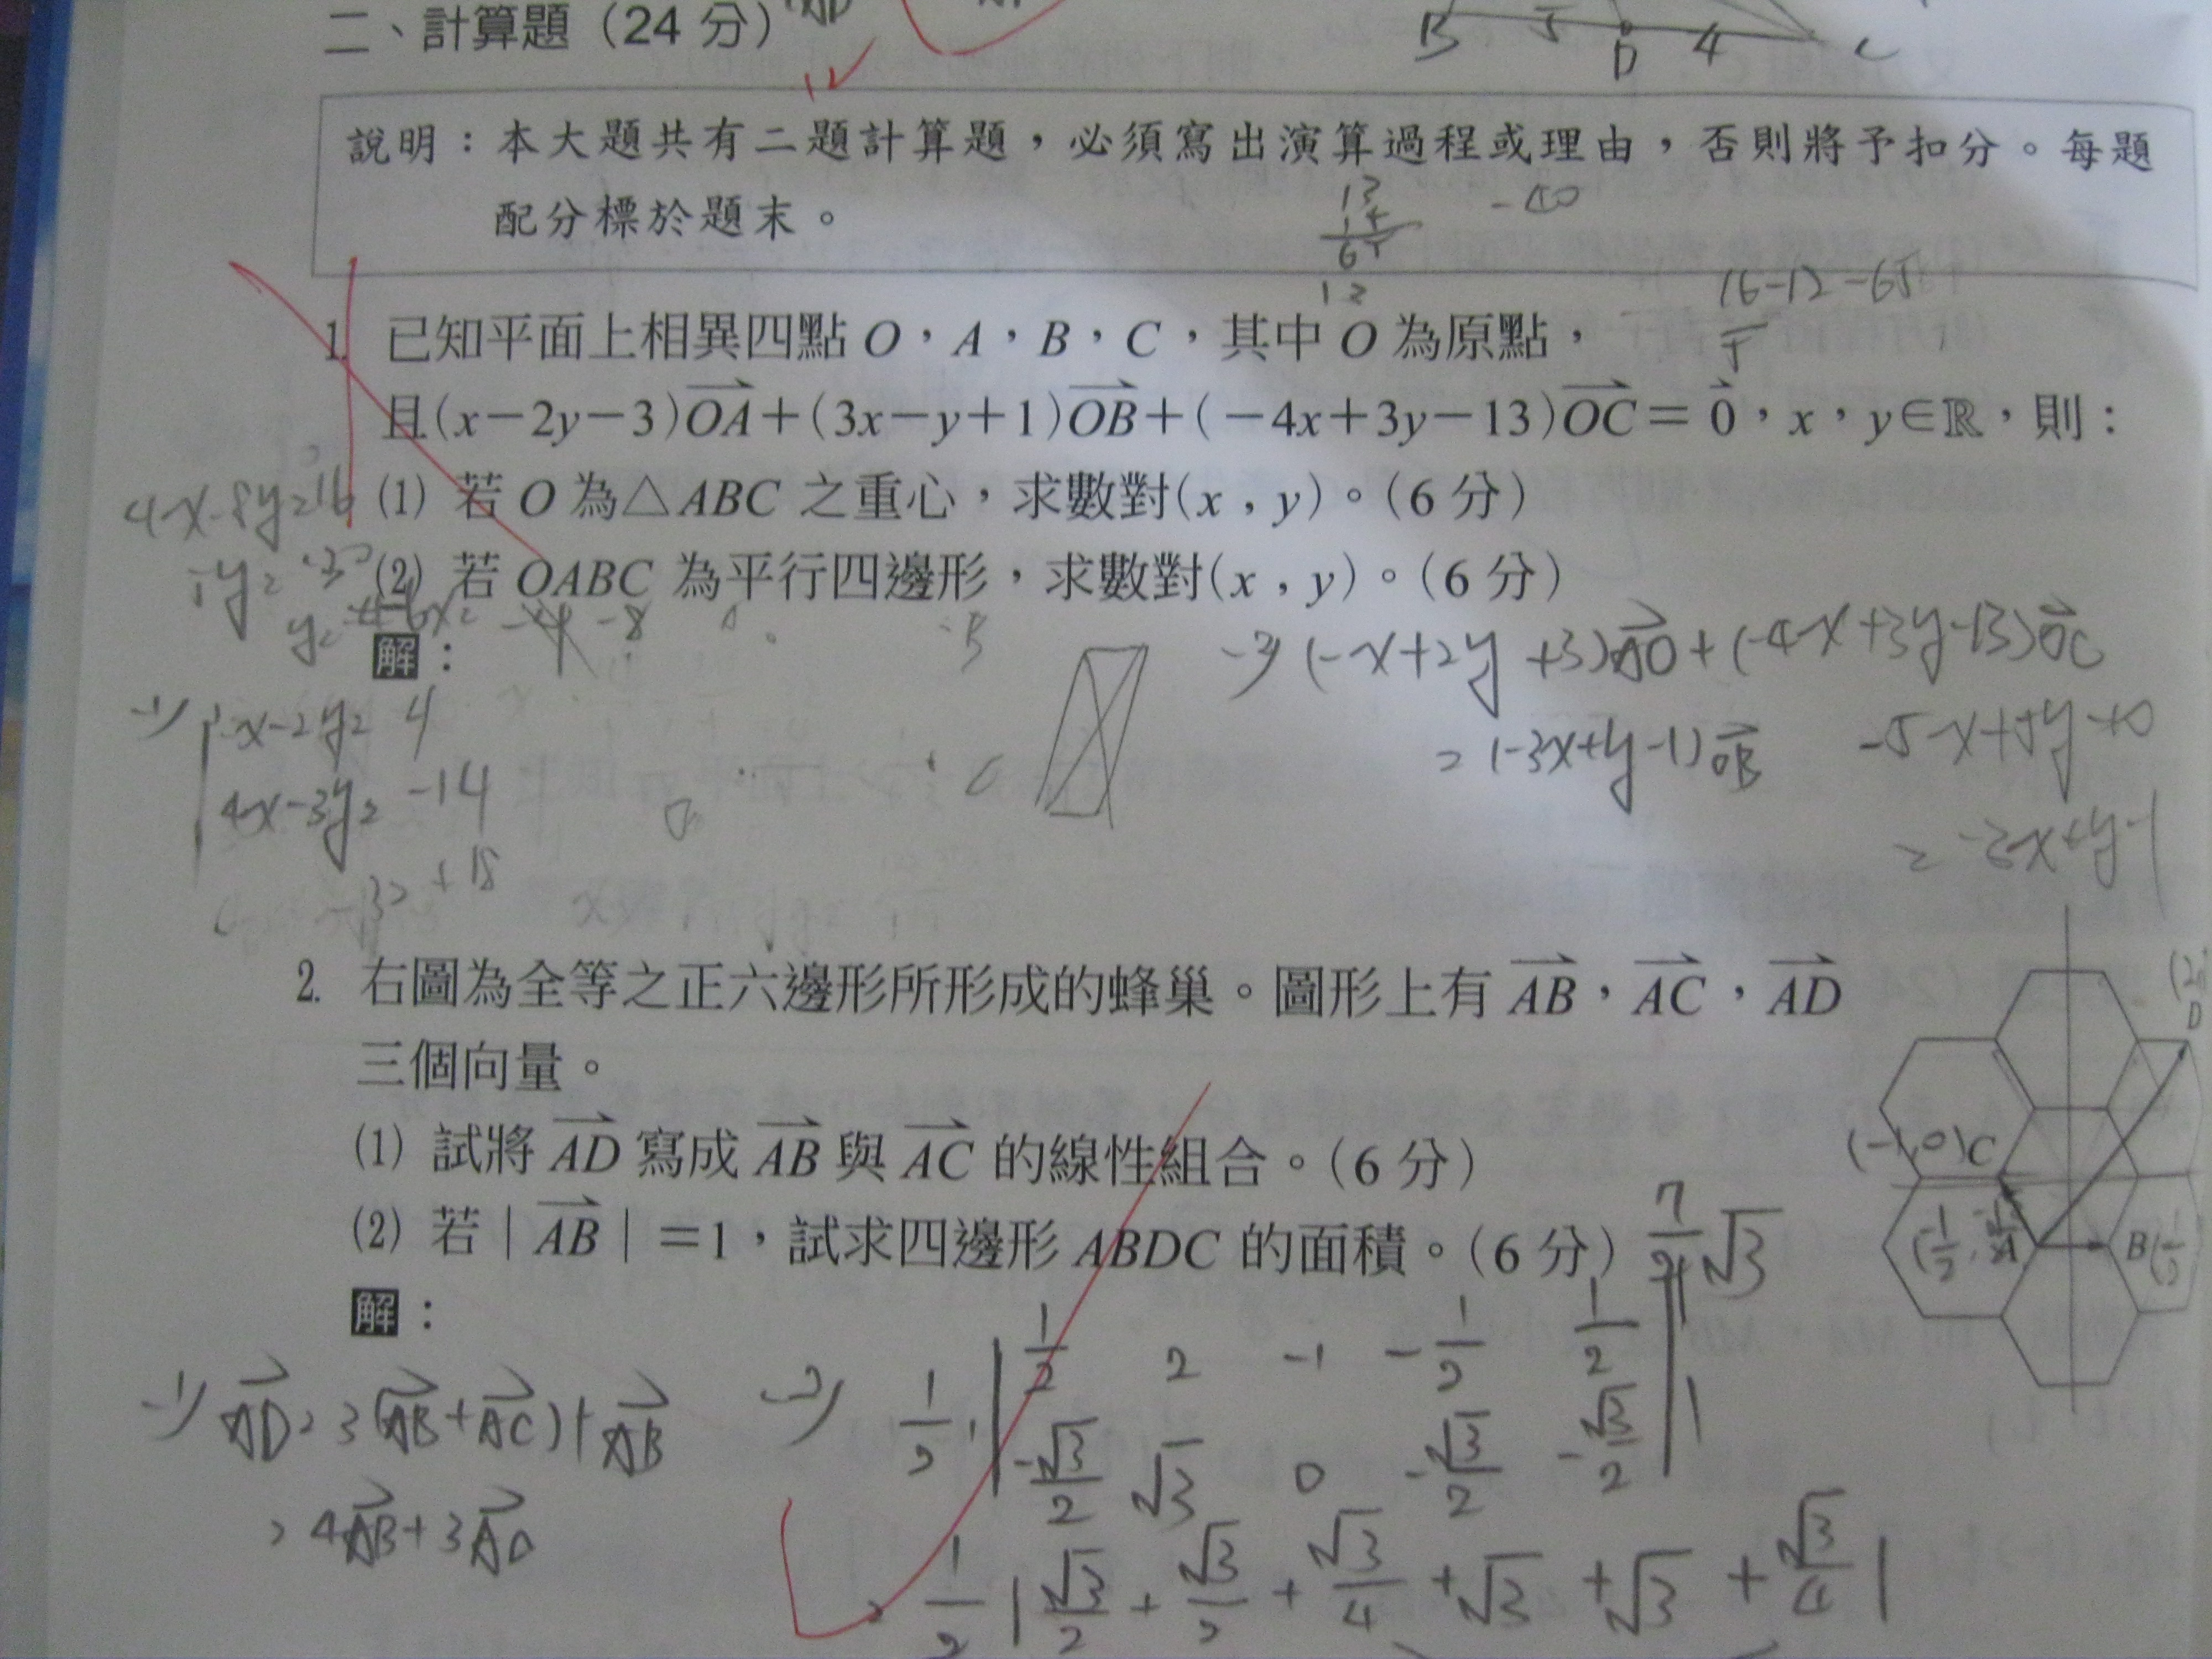 二、計算題（24 分）
B 5 D 4 C
說明：本大題共有二題計算題，必須寫出演算過程或理由，否則將予扣分。每題
配分標於題末。
-40
16-12-65
1. 已知平面上相異四點 O，A，B，C，其中 O 為原點，
且(x－2y－3)OA＋(3x－y＋1)OB＋(－4x＋3y－13)OC＝0，x，y∈ℝ，則：
(1) 若 O 為△ABC 之重心，求數對(x，y)。(6 分)
(2) 若 OABC 為平行四邊形，求數對(x，y)。(6 分)
4x-8y=16
解：
(-x+2y+3)AO+(-4x+3y-13)OC
=(-3x+y-1)OB
-5x+5y-10
=-3x+y-1
x-2y=4
4x-3y=-14
2. 右圖為全等之正六邊形所形成的蜂巢。圖形上有 AB，AC，AD
三個向量。
(1) 試將 AD 寫成 AB 與 AC 的線性組合。(6 分)
(2) 若 | AB |＝1，試求四邊形 ABDC 的面積。(6 分) 7/2√3
D
(-1,0)C
A
B
解：
AD=3(AB+AC)+AB
=4AB+3AC
1/2 | 1/2 2 -1 -1/2 1/2 |
-√3/2 √3 0 -√3/2 -√3/2
=1/2 | √3/2+√3/2+√3/4+√3+√3+√3/4 |